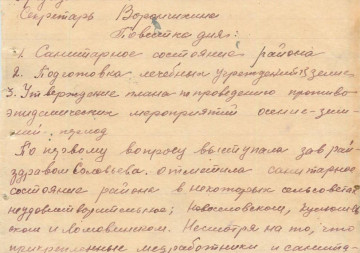 Секретарь Ворончихина
Повестка дня:
1. Санитарное состояние района
2. Подготовка лечебных учреждений к зиме
3. Утверждение плана по проведению противо-
эпидемических мероприятий осенне-зим-
ний период
По первому вопросу выступала зав рай-
здравом Соловьева. отметила санитарное
состояние района в некоторых сельсоветах
неудовлетворительное; Новословском,
ском и Ломовинском. Несмотря на то, что
прикрепленные медработники и санита-